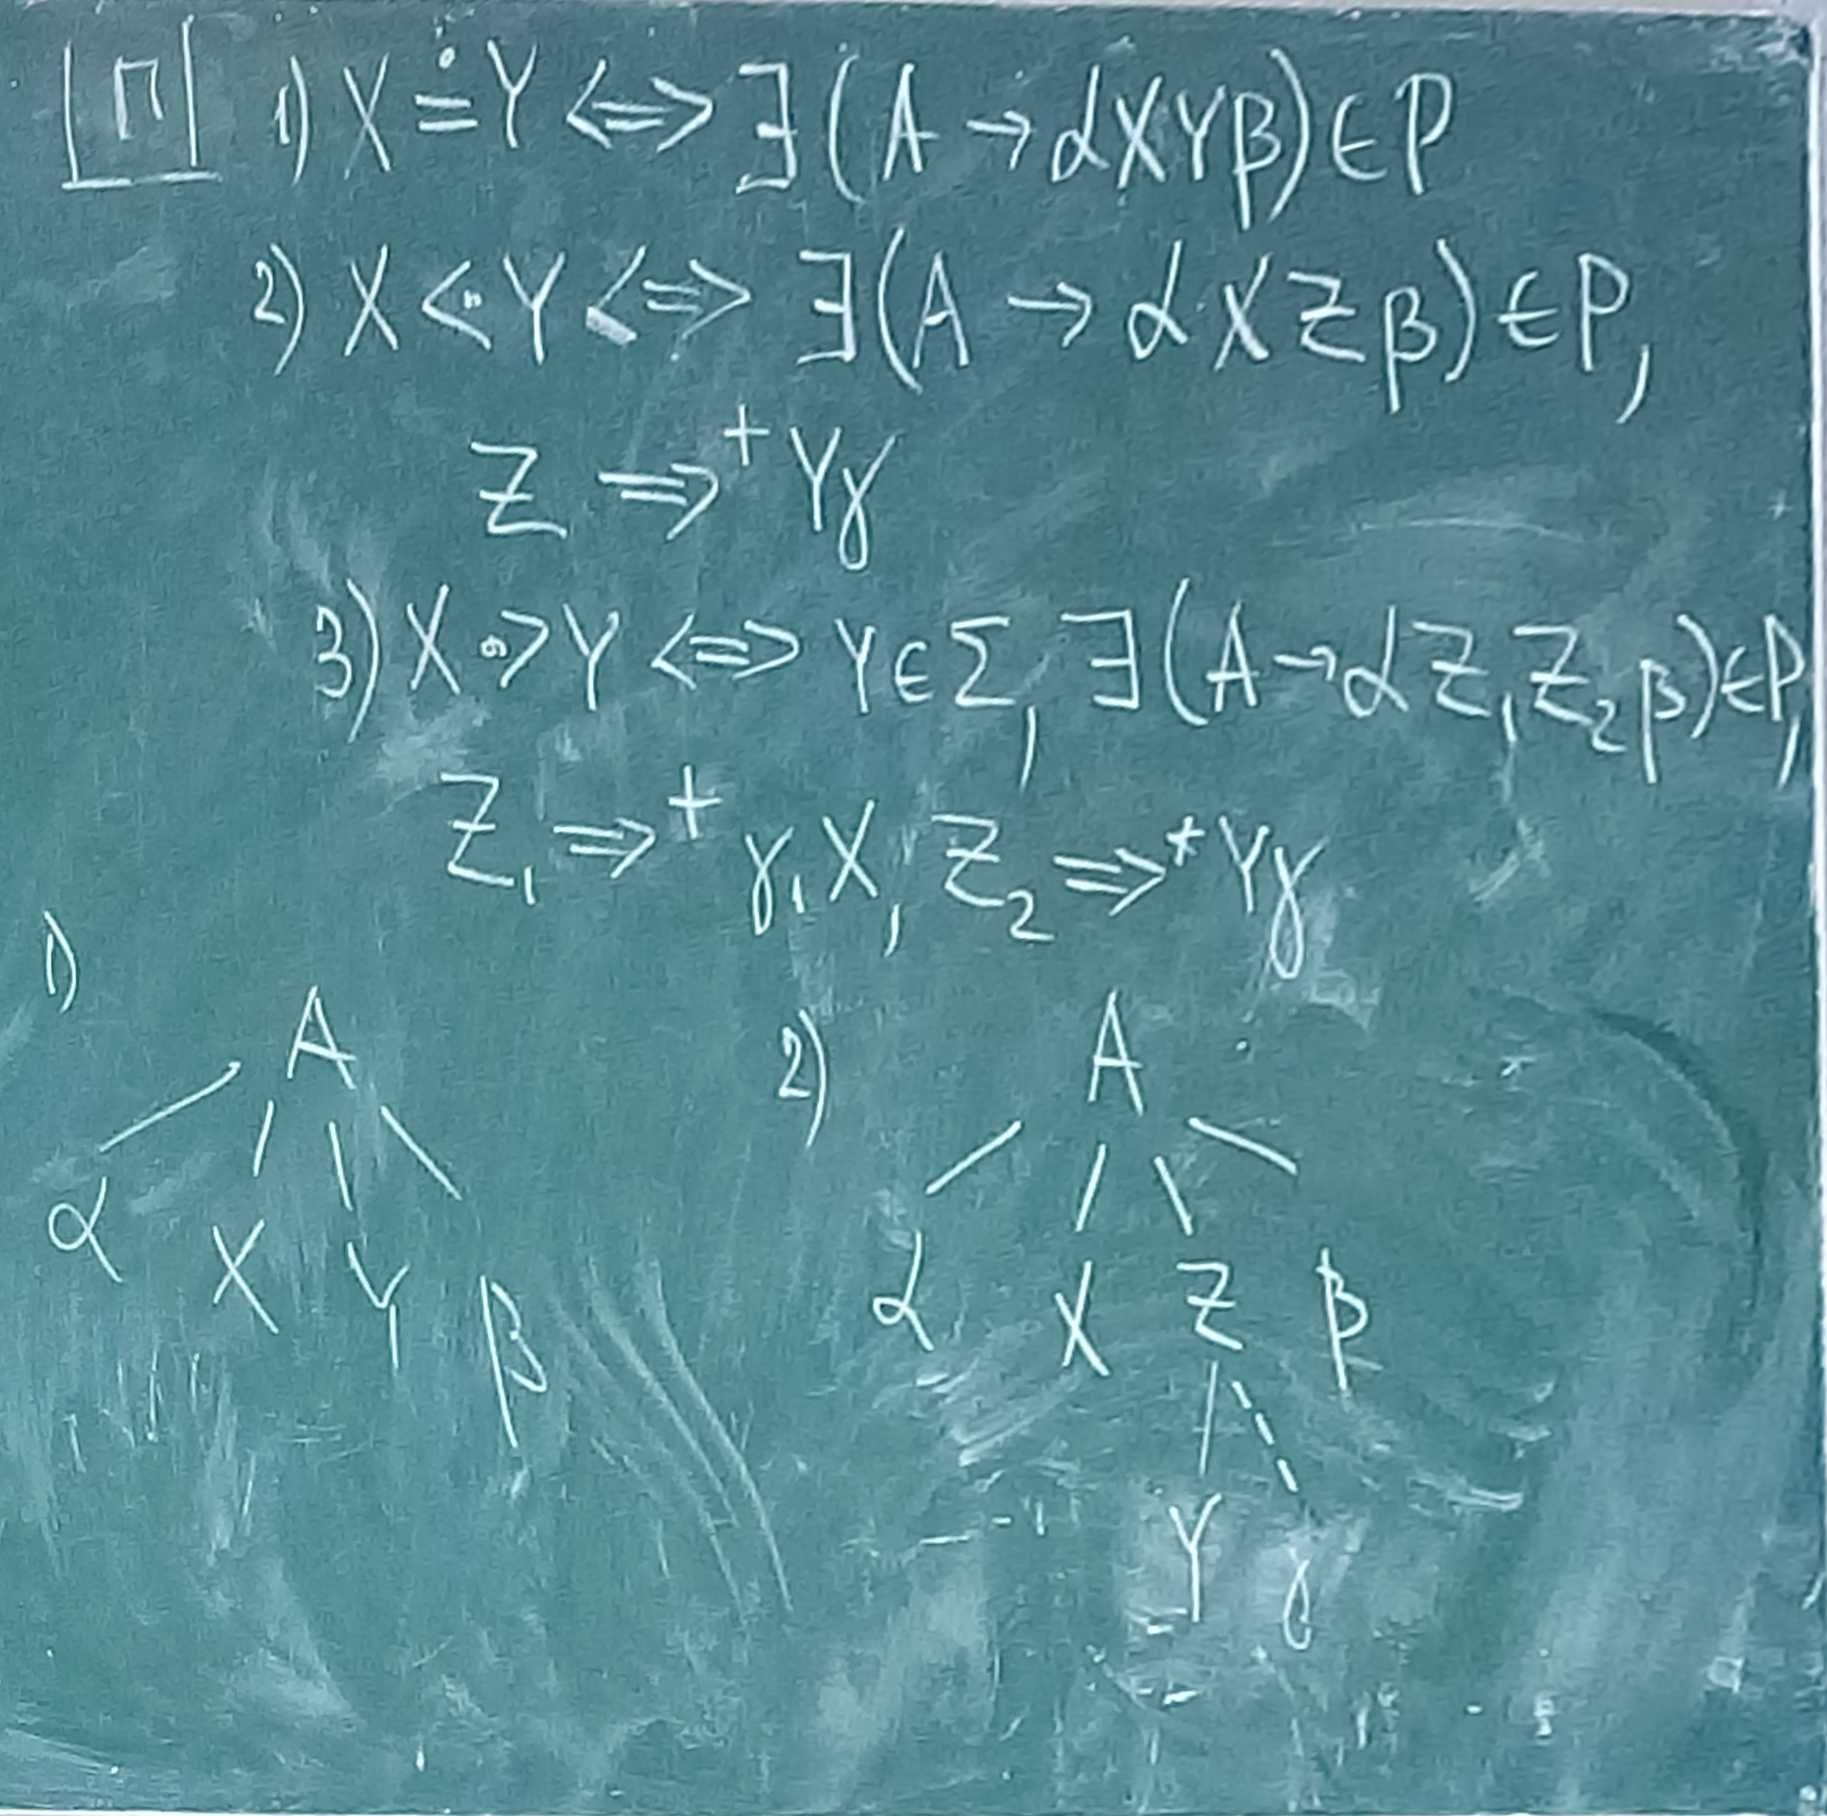 П 1) X ≐ Y ⟺ ∃(A → αXYβ) ∈ P
2) X ⋖ Y ⟺ ∃(A → αXZβ) ∈ P,
Z ⇒⁺ Yγ
3) X ⋗ Y ⟺ Y ∈ Σ, ∃(A → αZ₁Z₂β) ∈ P,
Z₁ ⇒⁺ γ₁X, Z₂ ⇒* Yγ
1) A
α X Y β
2) A
α X Z β
Y γ